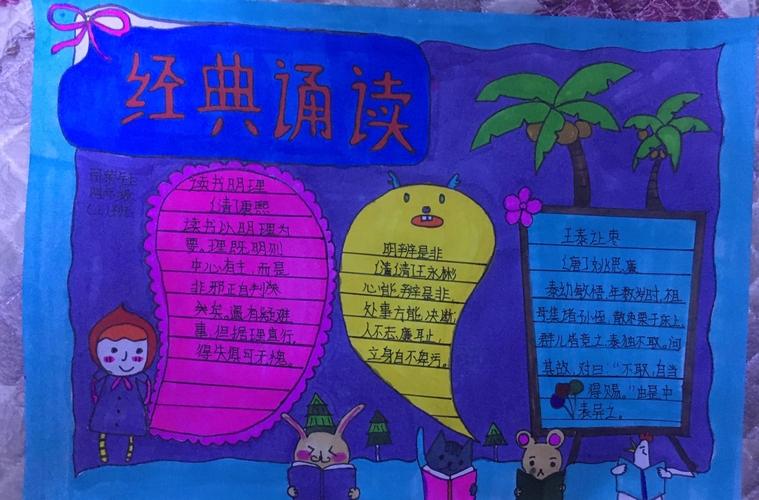 经典诵读
四年级
读书明理
(清)康熙
读书以明理为
要。理既明则
中心有主,而是
非邪正自判然
矣。遇有疑难
事,但据理直行,
得失俱可无愧。
明辨是非
(清)王永彬
心能辨是非,
处事方能决断,
人不忘廉耻,
立身自不卑污。
王泰让枣
(唐)李思廉
泰幼敏悟,年数岁时,祖
母集诸孙侄,散枣栗于床上,
群儿皆竞之,泰独不取。问
其故,对曰:“不取,自当
得赐。”由是中
表异之。